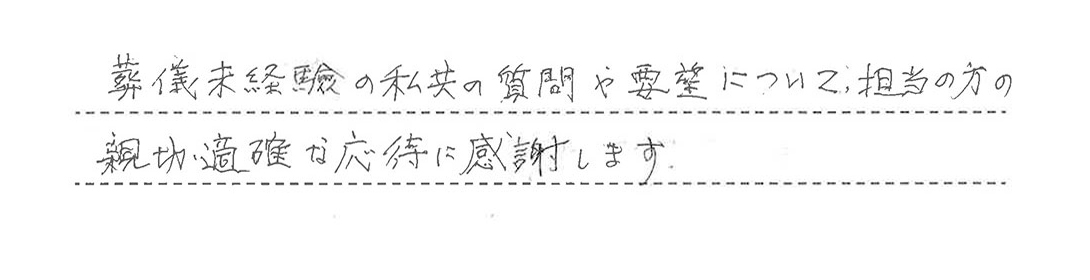 葬儀未経験の私共の質問や要望について、担当の方の
親切・適確な応待に感謝します。